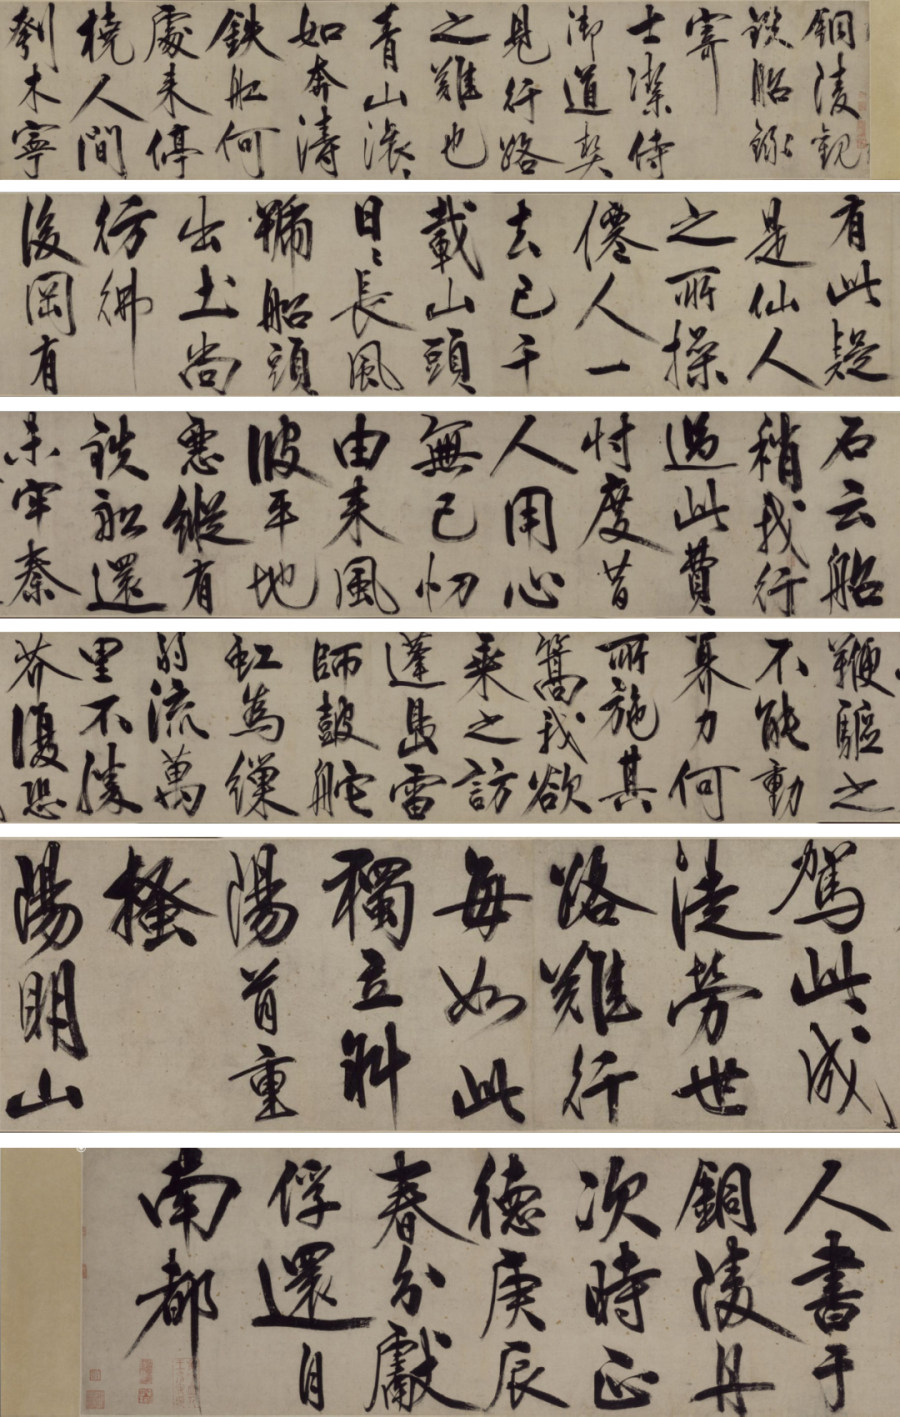 銅陵觀
鉄船錄
寄
士潔侍
御道契
見行路
之難也
青山滚〻
如奔濤
鉄船何
處来停
橈人間
刳木寧
有此疑
是仙人
之所操
僊人一
去已千
載山頭
日〻長風
號船頭
出土尚
彷彿
後岡有
石云船
稍我行
過此費
忖度昔
人用心
無已忉
由来風
波平地
惡縱有
鉄船還
未牢秦
鞭驅之
不能動
奡力何
所施其
篙我欲
乗之訪
蓬島雷
師皷舵
虹為繅
弱流萬
里不勝
芥復恐
駕此成
徒勞世
路難行
每如此
獨立斜
陽首重
搔
陽明山
人書于
銅陵舟
次時正
德庚辰
春分獻
俘還自
南都